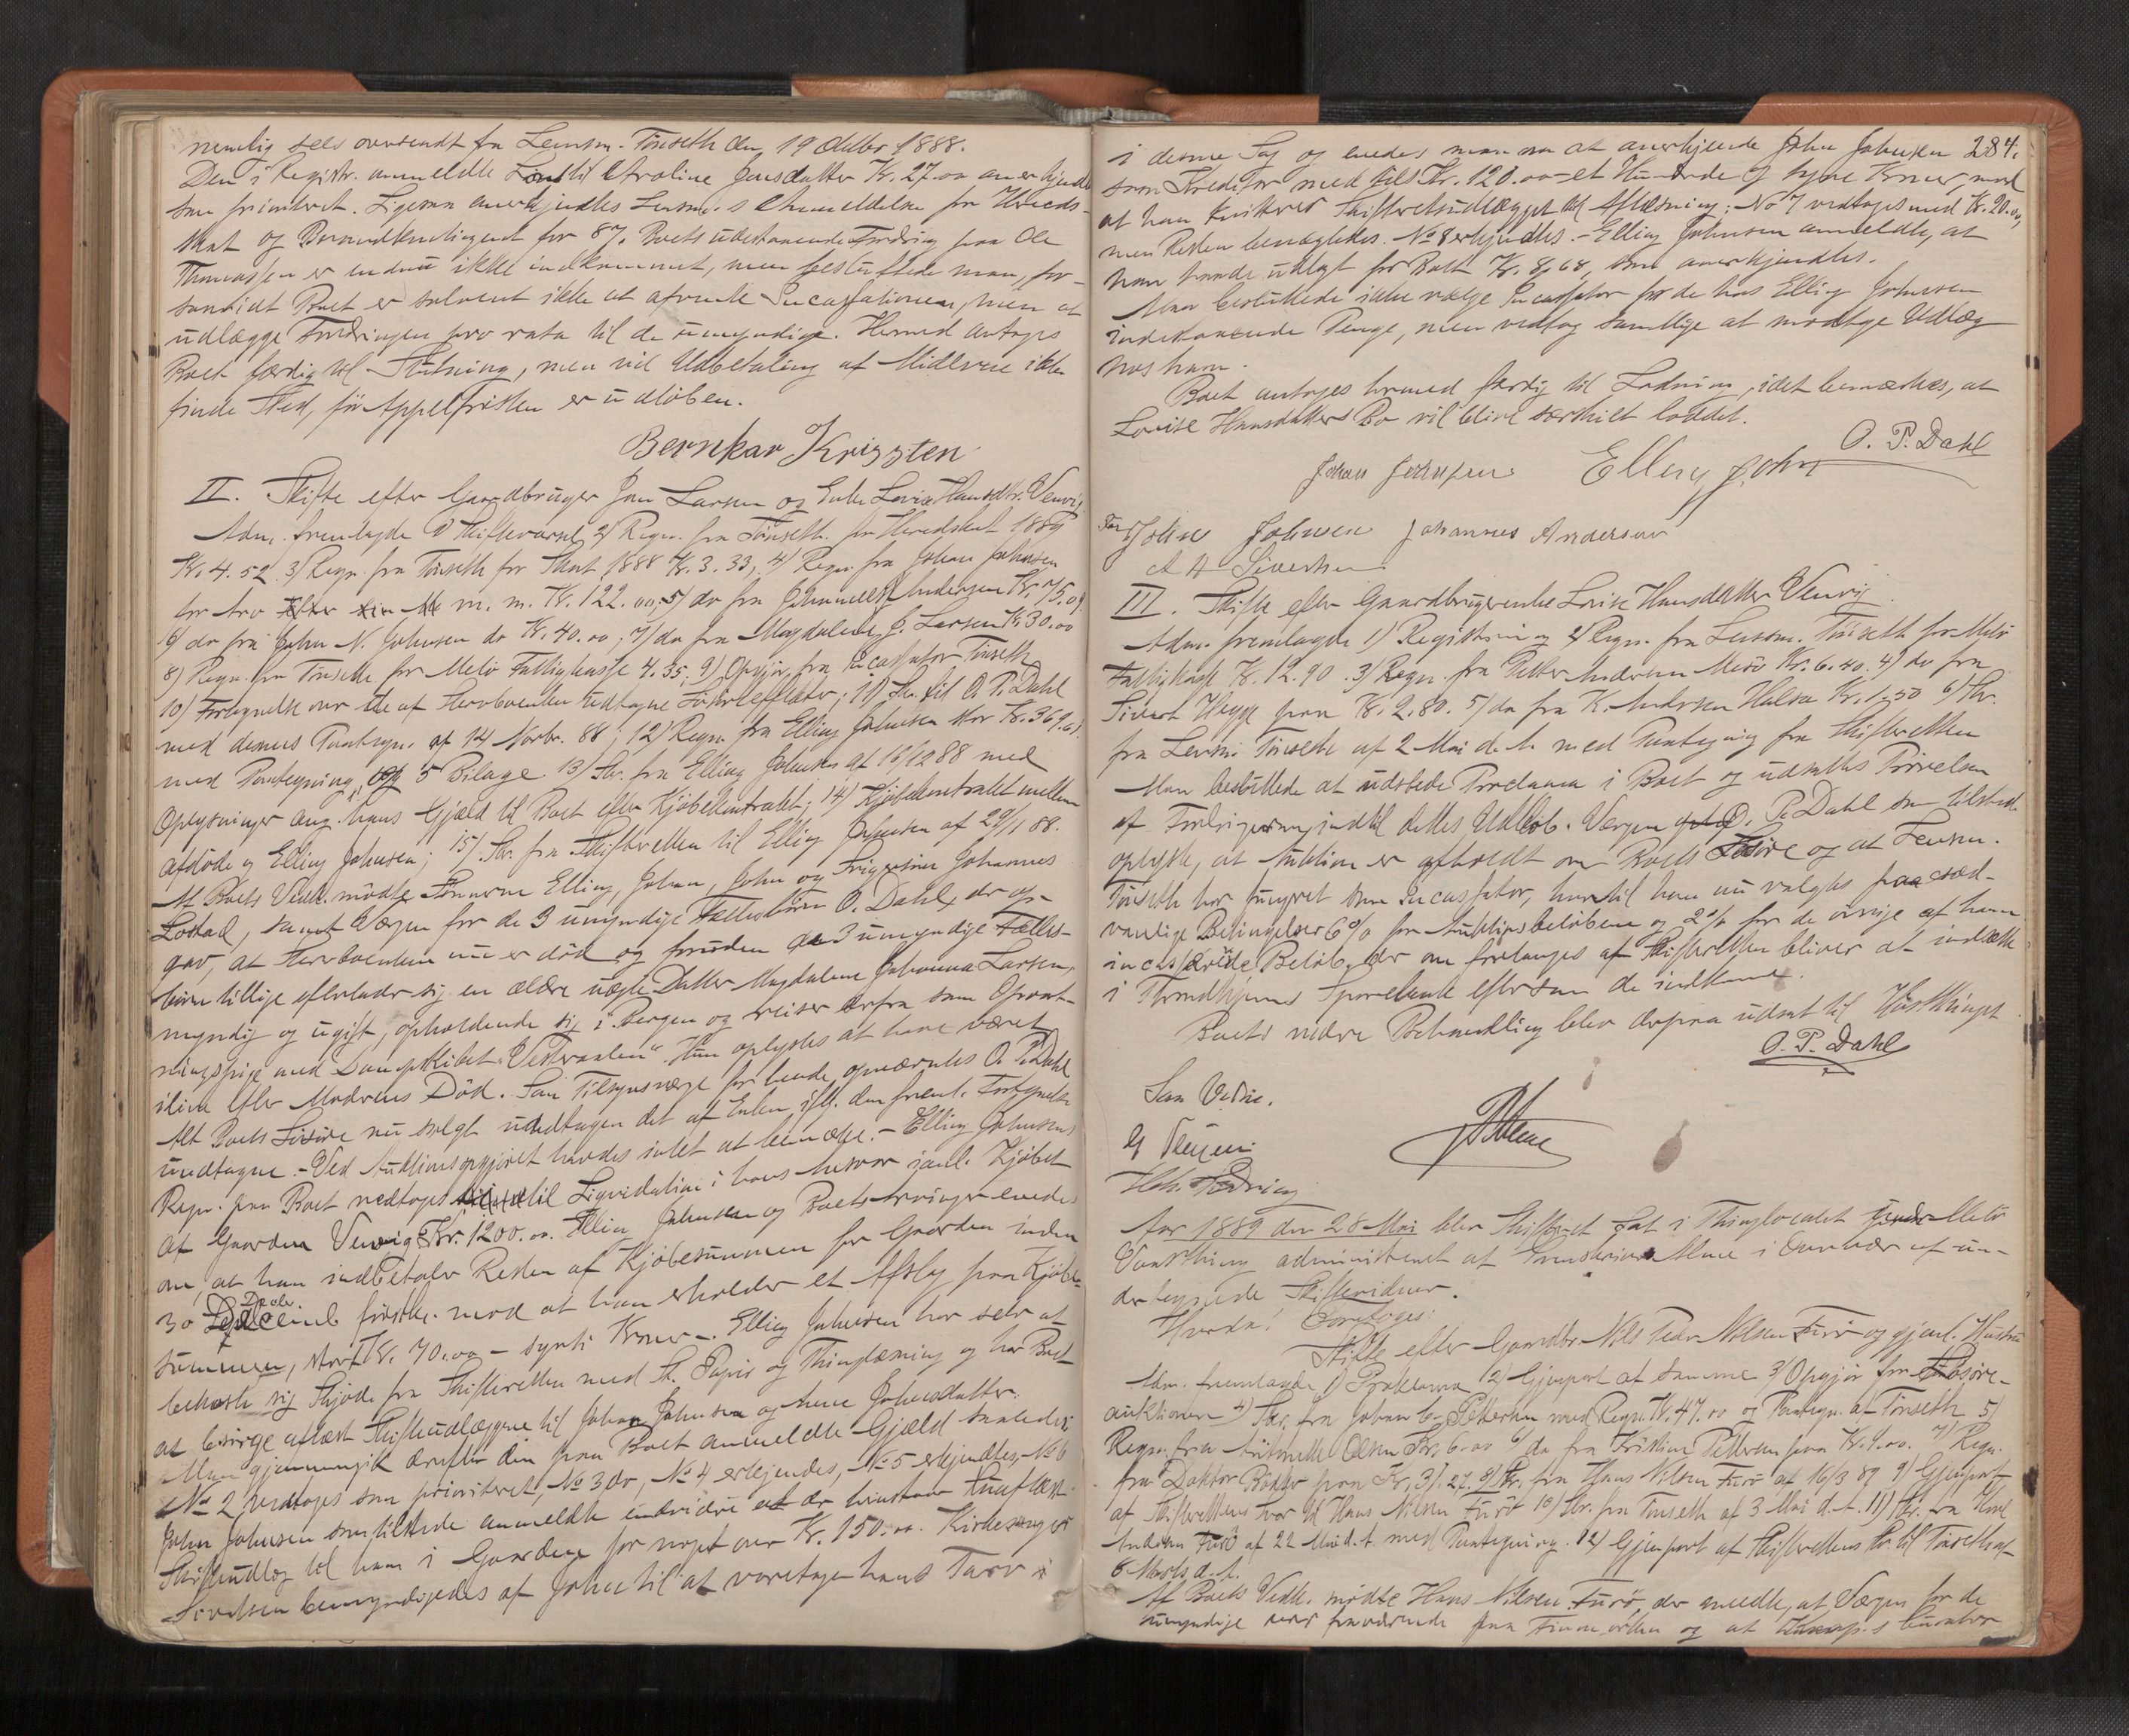 nemlig sees oversendt fra Lensm. Tönseth den 19 Oktbr 1888.
Den i Registr. anmeldte Lön til Karoline Jensdatter Kr. 27.00 anerkjendt
som prioriteret. Ligesom anerkjendtes Lensm.s Anmeldelse for Herreds-
skat og Brandkontingent for 87. Boets udestaaende Fordring paa Ole
Thomassen er endnu ikke indkommet, men besluttede man, for-
saavidt Boet er solvent ikke at afvente Incassationen, men at
udlægge Fordringen pro rata til de umyndige. Hermed antages
Boet færdig til Slutning, men vil Udbetaling af Midlerne ikke
finde Sted, før Appelfristen er udløben.
II. Skifte efter Gaardbruger Jon Larsen og Enke Lovise Hansdtr. Venvig
Adm. fremlagde 1) Skifteværsel, 2) Regn. fra Tönseth for Herredskat 1889
Kr. 4.52 3) Regn. fra Tönseth for Skat 1888 Kr. 3.33, 4) Regn. fra Johan Johnsen
for m. m. Kr. 122.00, 5) do fra Johannes Andersen Kr. 75.00.
6) do fra John N. Johnsen do Kr. 40.00, 7) do fra Magdalene J. Larsen Kr. 30.00
8) Regn. fra Tönseth for Melö Fattigkasse 4.35; 9) Opgjör fra Incassator Tönseth
10) Fortegnelse over de af Sterboenken udtagne Lösöreeffekter; 11) Skr. til O. P. Dahl
med dennes Paategn. af 14 Novbr. 88; 12) Regn. fra Elling Johnsen stor Kr. 369.61
med Paategning og 5 Bilage 13) Skr. fra Elling Johnsen af 16/12 88 med
Oplysninger ang. hans Gjæld til Boet efter Kjöbekontrakt; 14) Kjöbekontrakt mellem
afdöde og Elling Johnsen; 15) Skr. fra Skifteretten til Elling Johnsen af 29/1 88.
Af Boets Vedk. mödte Sönnerne Elling, Johan, John og Svigersön Johannes
samt Værgen for de 3 umyndige Fællesbörn O. Dahl, der op-
gav, at Sterboenken nu er död og foruden de 3 umyndige Fælles-
börn tillige efterlader sig en ældre uægte Datter Magdalene Johanna Larsen,
myndig og ugift, opholdende sig i Bergen og reiser derfra som Opvart-
ningspige med Dampskibet "Vesteraalen". Hun oplystes at have været
ilive efter Moderens Död. Som Tilsynsværge for hende opnævntes O. P. Dahl
Alt Boets Lösöre nu solgt undtagen det af Enken iflg. den freml. Fortegnelse
undtagne. - Ved Auktionsopgjöret havdes intet at bemærke. - Elling Johnsens
Regn. paa Boet vedtoges til Liquidation i hans Kjöbet
af Gaarden Venvig Kr. 1200.00. Elling Johnsen og Boets Arvinger enedes
om, at han indbetaler Resten af Kjöbesummen for Gaarden inden
30 Decbr. förstk. mod at han erholder et Afslag paa Kjöbe-
summen, stort Kr. 70.00 - sytti Kroner -. Elling Johnsen har selv at
bekoste sig Skjöde fra Skifteretten med St. Papir og Thinglæsning og har Boet
at besörge aflæst Skifteudlæggene til Johan Johnsen og Anne Johnsdatter.
Man gjennemgik derefter den paa Boet anmeldte Gjæld saaledes:
No 2 vedtoges som prioriteret, No 3 do, No 4 erkjendes, No 5 erkjendtes, No 6
John Johnsen som tilstede anmeldte endvidere at der
Skifteudlæg til ham i Gaarden for noget over Kr. 150.00. Kirkesanger
Sivertsen bemyndigedes af John til at varetage hans Tarv
284.
i denne Sag og enedes man om at anerkjende John Johnsen
som Kreditor med tils. Kr. 120.00 - et Hundrede og tyve Kroner, mod
at han kvitterer Skifteretsudlægget til Aflæsning; No 7 vedtoges med Kr. 20.00,
men Resten benægtedes. No 8 erkjendtes. - Elling Johnsen anmeldte, at
han havde udlagt for Boet Kr. 8.68, som anerkjendtes.
Man besluttede ikke vælge Incassator for de hos Elling Johnsen
indestaaende Penge, men vedtog samtlige at modtage Udlæg
hos ham.
Boet antages hermed færdig til Lodning, idet bemærkes, at
Lovise Hansdatters Bo vil blive særskilt loddet.
O. P. Dahl
Johan Johnsen Elling John
For John Johnsen Johannes Andersen
A H Sivertsen
III. Skifte efter Gaardbrugerenke Lovise Hansdatter Venvig.
Adm. fremlagde 1) Registrering 2) Regn. fra Lensm. Tönseth for Melö
Fattigkasse Kr. 12.90 3) Regn. fra Petter Andersen Meöö Kr. 6.40. 4) do fra
Sivert paa Kr. 2.80. 5) do fra K. Andersen Halsa Kr. 1.50 6) Skr.
fra Lensm. Tönseth af 2 Mai d. A. med Paategning fra Skifteretten
Man besluttede at udstede Proclama i Boet og udsattes Prövelsen
af Fordringerne indtil dettes Udlöb. Værgen O. P. Dahl som tilstede
oplyste, at Auktion er afholdt over Boets Lösöre og at Lensm.
Tönseth har fungeret som Incassator, hvortil han nu valgtes paa sæd-
vanlige Betingelser 6% for Auktionsbelöbene og 2% for de övrige af ham
incasserede Belöb, der om forlanges af Skifteretten bliver at indsætte
i Throndhjems Sparebank eftersom de indkomme.
Boets videre Behandling blev derpaa udsat til Höstthinget
O. P. Dahl
Som Vidne.
Aar 1889 den 28 Mai blev Skifteret sat i Thinglocalet under Melö
Vaarthing administreret af i Overvær af un-
dertegnede Skiftevidner.
Hvorda! Foretoges:
Skifte efter Gaardbr. Nils Peder Nilsen Furö og gjenl. Hustru
Adm. fremlagde 1) Proklama 2) Gjenpart af samme 3) Opgjör for Lösöre-
auktionen 4) Skr. fra Johan C. Pettersen med Regn. Kr. 47.00 og Paategn. af Tönseth 5)
Regn. fra Olsen Kr. 6.00 6) do fra Kristian Pettersen paa Kr. 4.00. 7) Regn.
fra Doktor paa Kr. 31.27 8) Skr. fra Hans Nilsen Furö af 16/3 89 9) Gjenpart
af Skifterettens Svar til Hans Nilsen Furö 10) Skr. fra Tönseth af 3 Mai d. A. 11) Skr. fra
Andersen Furö af 22 Mai d. A. med Paategning. 12) Gjenpart af Skifterettens Skr. til Tönseth af
6 Marts d. A.
Af Boets Vedk. mödte Hans Nilsen Furö, der meldte, at Værgen for de
umyndige var fraværende paa Finmarken og at